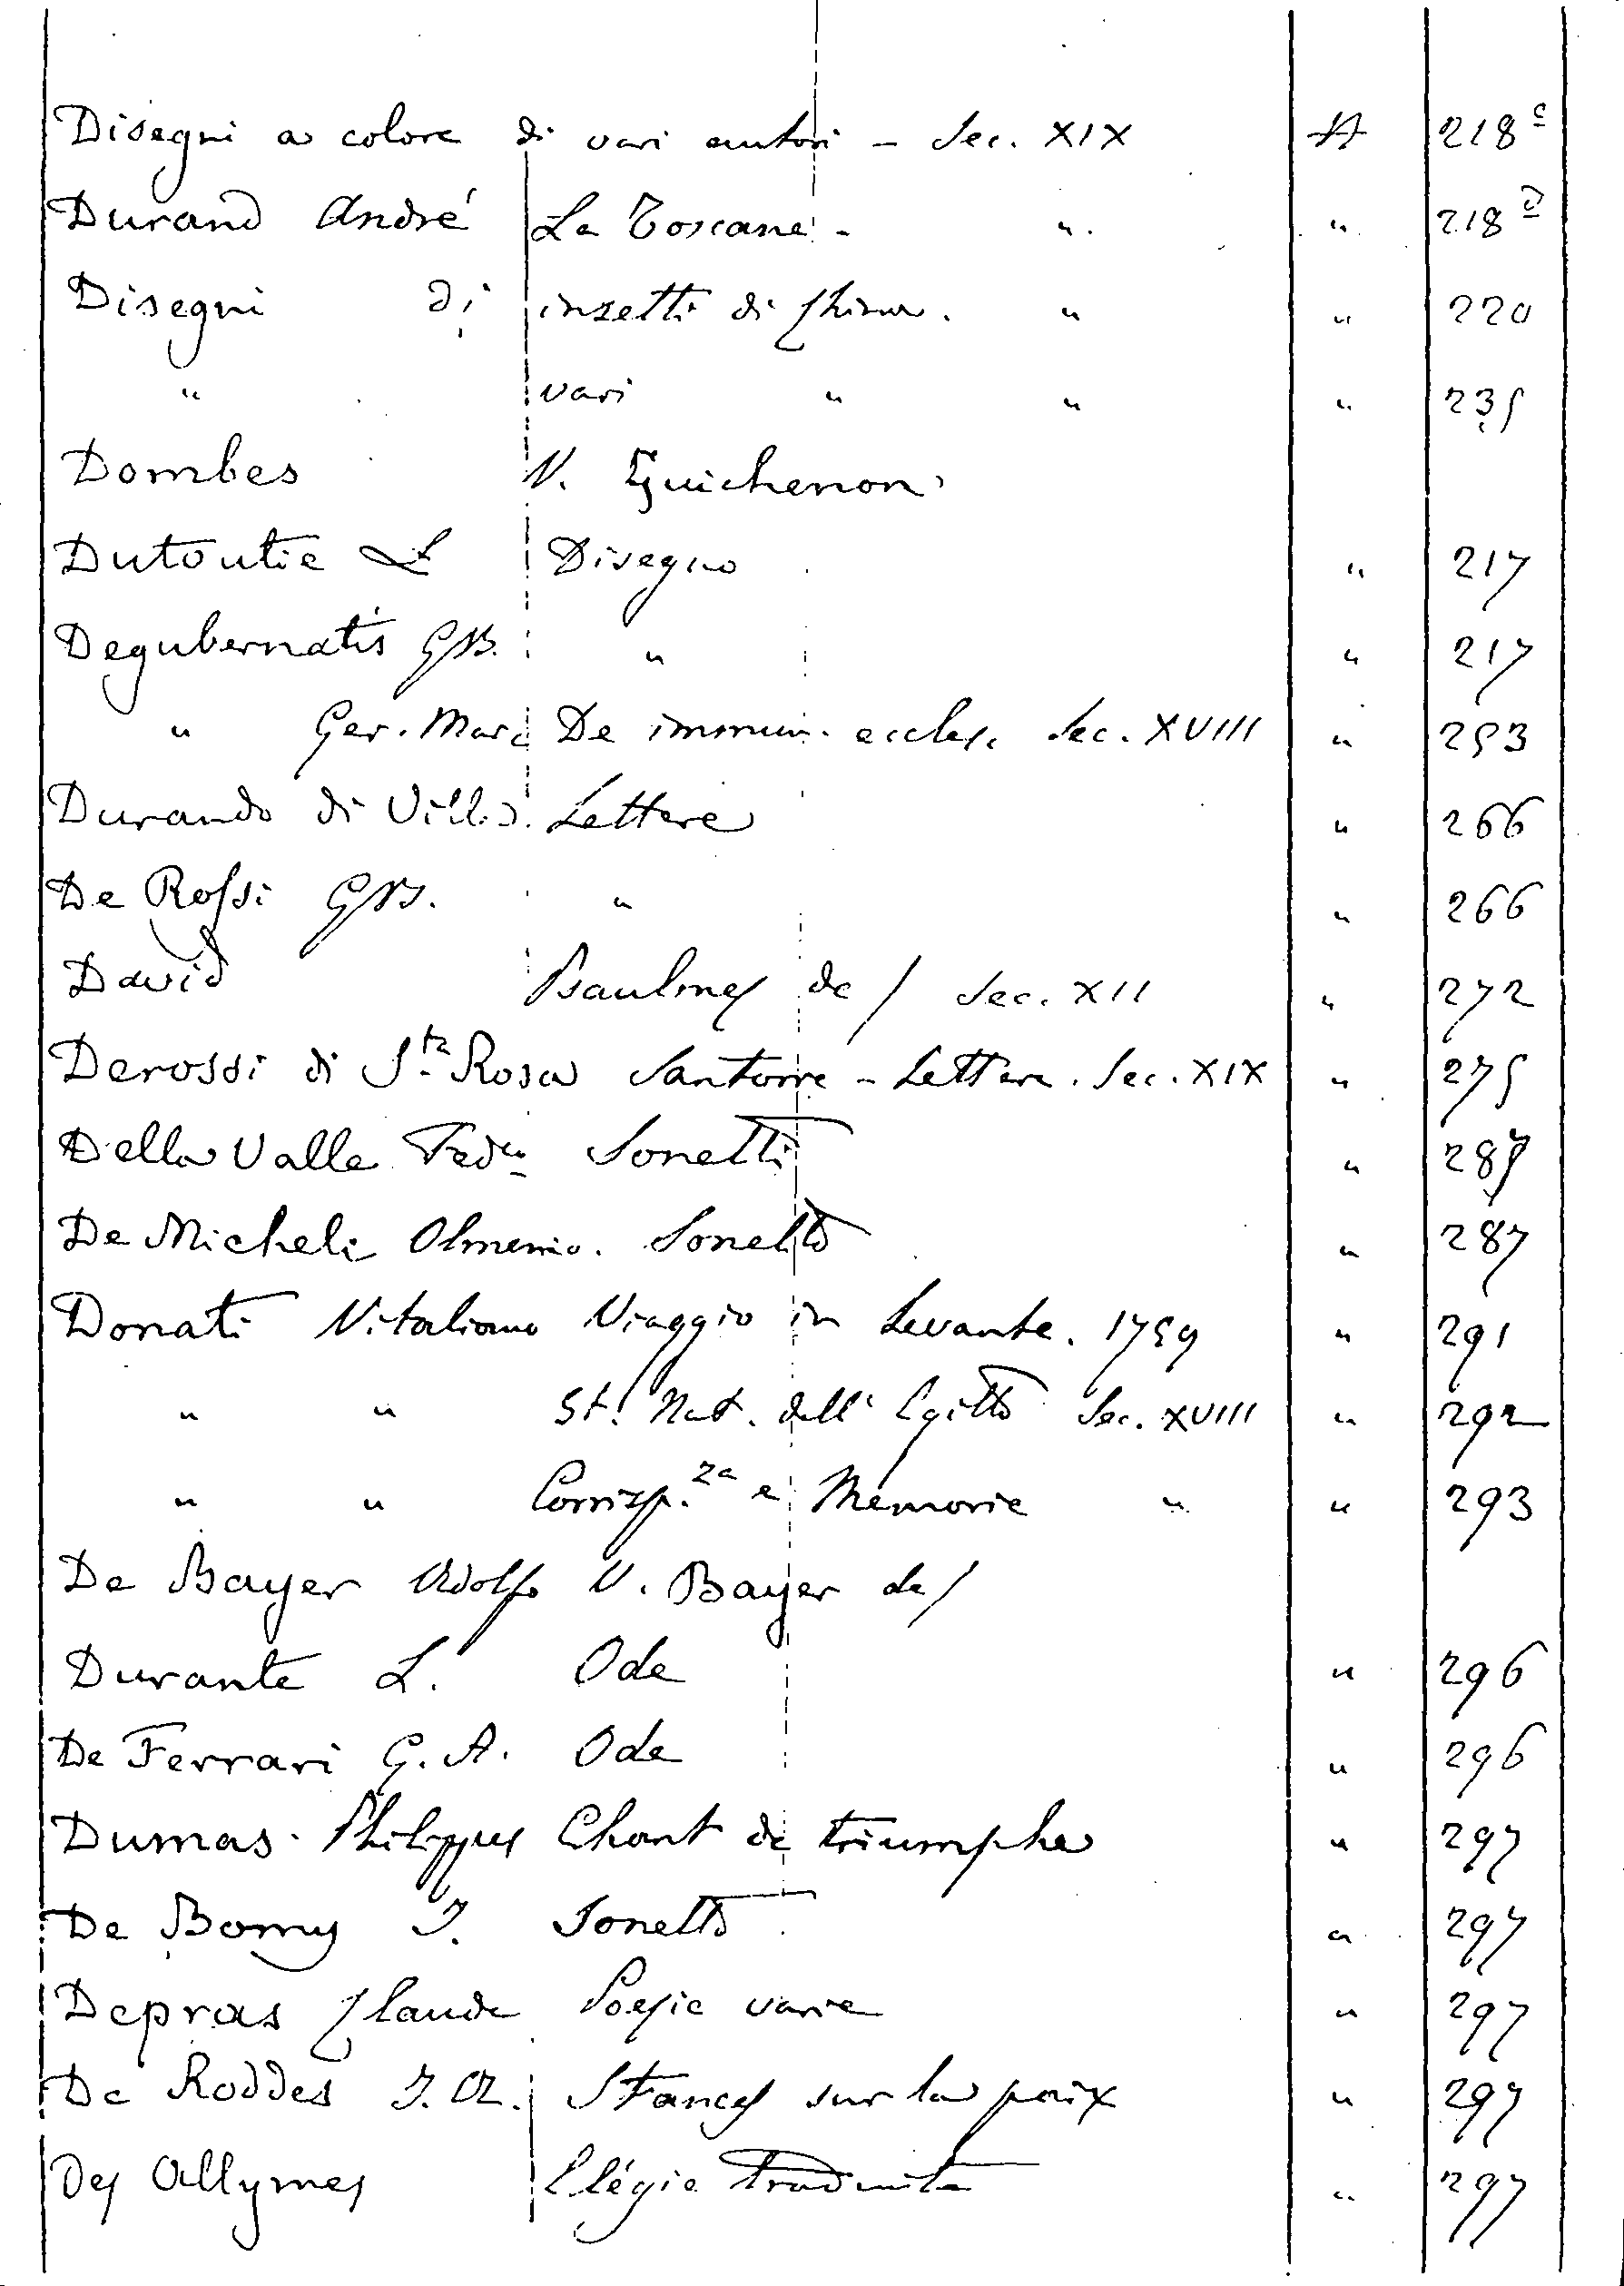 Disegni a colore di vari autori - Sec. XIX A 218 c
Durand André La Toscane - " " 218 d
Disegni di insetti di China. " " 220
" vari " " " 235
Dombes V. Guichenon.
Dutoutie L Disegno " 217
Degubernatis GB. " " 217
" Ger. Marc De immun. eccles. Sec. XVIII " 253
Durando di Villa Lettere " 266
De Rossi GB. " " 266
David Psaulmes de / Sec. XII " 272
Derossi di Sta Rosa Santorre - Lettere. Sec. XIX " 275
Della Valle Fedco Sonetti "
De Micheli Olmenio. Sonetto " 287
Donati Vitaliano Viaggio in Levante. 1759 " 291
" " St. Nat. dell' Egitto Sec. XVIII " 292
" " Corrisp.za e Memorie " " 293
De Bayer Adolfo V. Bayer de /
Durante L. Ode " 296
De Ferrari G. A. Ode " 296
Dumas. Philippes Chant de triumphe " 297
De Bomy J. Sonetto " 297
Depras Claude Poesie varie " 297
De Roddes J. A. Stances sur la paix " 297
Des Allymes Elégie traduite " 297